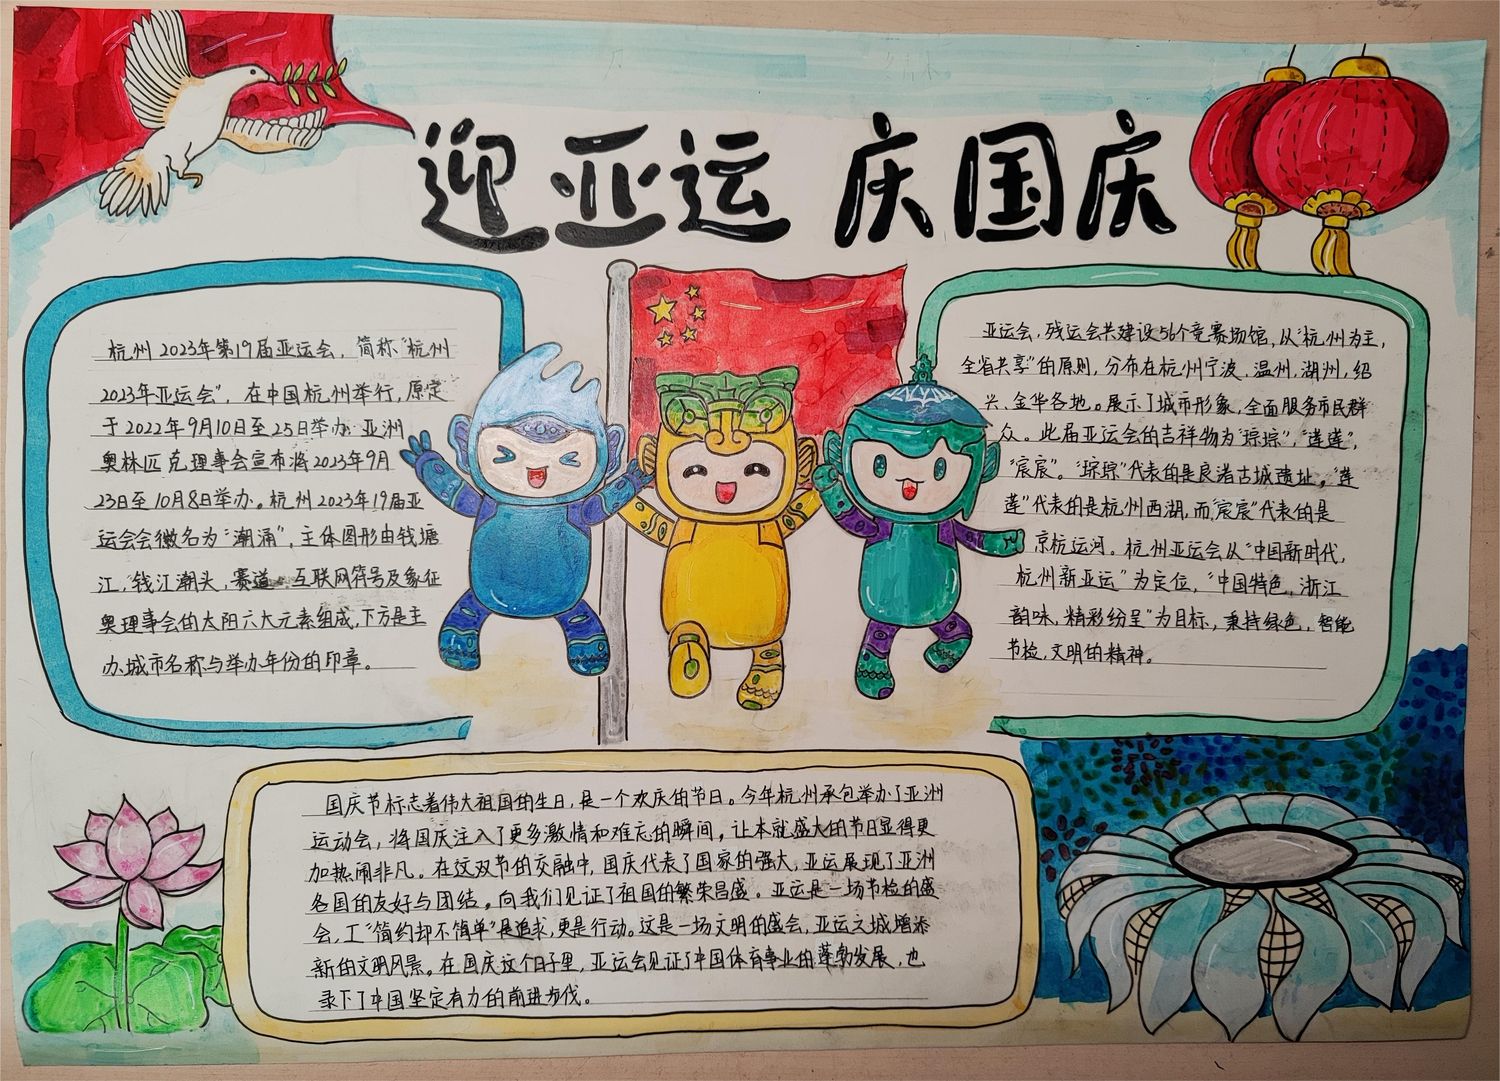 迎亚运 庆国庆
杭州2023年第19届亚运会，简称"杭州
2023年亚运会"，在中国杭州举行，原定
于2022年9月10日至25日举办 亚洲
奥林匹克理事会宣布将2023年9月
23日至10月8日举办。杭州2023年19届亚
运会会徽名为"潮涌"，主体图形由钱塘
江，钱江潮头，赛道 互联网符号及象征
奥理事会的太阳六大元素组成，下方是主
办城市名称与举办年份的印章。
亚运会，残运会共建设56个竞赛场馆，从"杭州为主，
全省共享"的原则，分布在杭州宁波、温州，湖州，绍
兴、金华各地。展示了城市形象，全面服务市民群
众。此届亚运会的吉祥物为"琮琮"，"莲莲"，
"宸宸"。"琮琮"代表的是良渚古城遗址。"莲
莲"代表的是杭州西湖，而"宸宸"代表的是
京杭运河。杭州亚运会从"中国新时代，
杭州新亚运"为定位，"中国特色，浙江
韵味，精彩纷呈"为目标，秉持绿色，智能
节检，文明的精神。
国庆节标志着伟大祖国的生日，是一个欢庆的节日。今年杭州承包举办了亚洲
运动会，将国庆注入了更多激情和难忘的瞬间，让本就盛大的节日显得更
加热闹非凡。在这双节的交融中，国庆代表了国家的强大，亚运展现了亚洲
各国的友好与团结。向我们见证了祖国的繁荣昌盛。亚运是一场节检的盛
会，工"简约却不简单"是追求，更是行动。这是一场文明的盛会，亚运之城增添
新的文明风景。在国庆这个日子里，亚运会见证了中国体育事业的蓬勃发展，也
录下了中国坚定有力的前进步伐。